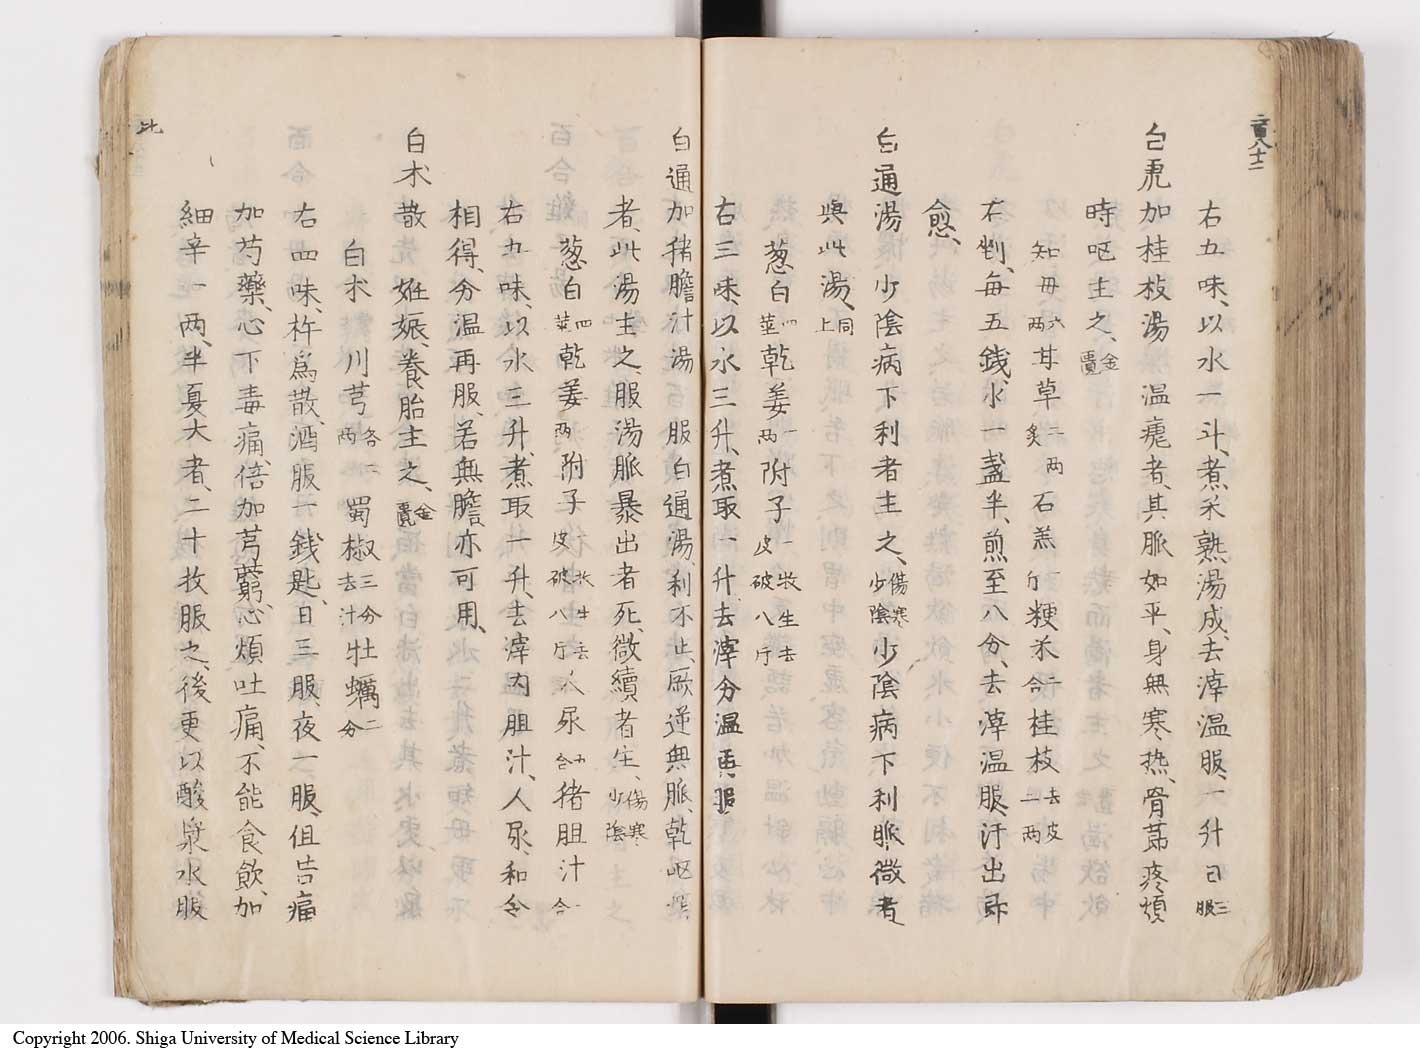 右五味、以水一斗、煮米熟湯成、去滓温服、一升日三服
白虎加桂枝湯 温瘧者、其脈如平、身無寒热、骨節疼煩
時呕主之、金匱
知毋六両甘草二両炙石羔一斤粳米二合桂枝去皮二両
右剉、每五錢、水一盞半、煎至八分、去滓温服、汗出即
愈、
白通湯 少陰病下利者主之、傷寒少陰少陰病下利脈微者
與此湯、同上
葱白四莖乾姜一両附子一枚生去皮破八斤
右三味、以水三升、煮取一升、去滓分温再服
白通加猪膽汁湯 服白通湯、利不止、厥逆無脈、乾呕煩
者、此湯主之、服湯脈暴出者死、微續者生、傷寒少陰
葱白四莖乾姜一両附子一枚生去皮破八斤人尿五合猪胆汁一合
右五味、以水三升、煮取一升、去滓内胆汁、人尿、和令
相得、分温再服、若無膽、亦可用、
白术散 妊娠、養胎主之、金匱
白术川芎各二両蜀椒三分去汁牡蠣二分
右四味、杵爲散、酒服一錢匙、日三服夜一服、但告痛
加芍藥、心下毒痛、倍加芎藭、心煩吐痛、不能食飲、加
細辛一両、半夏大者、二十枚服之、後更以酸漿水服